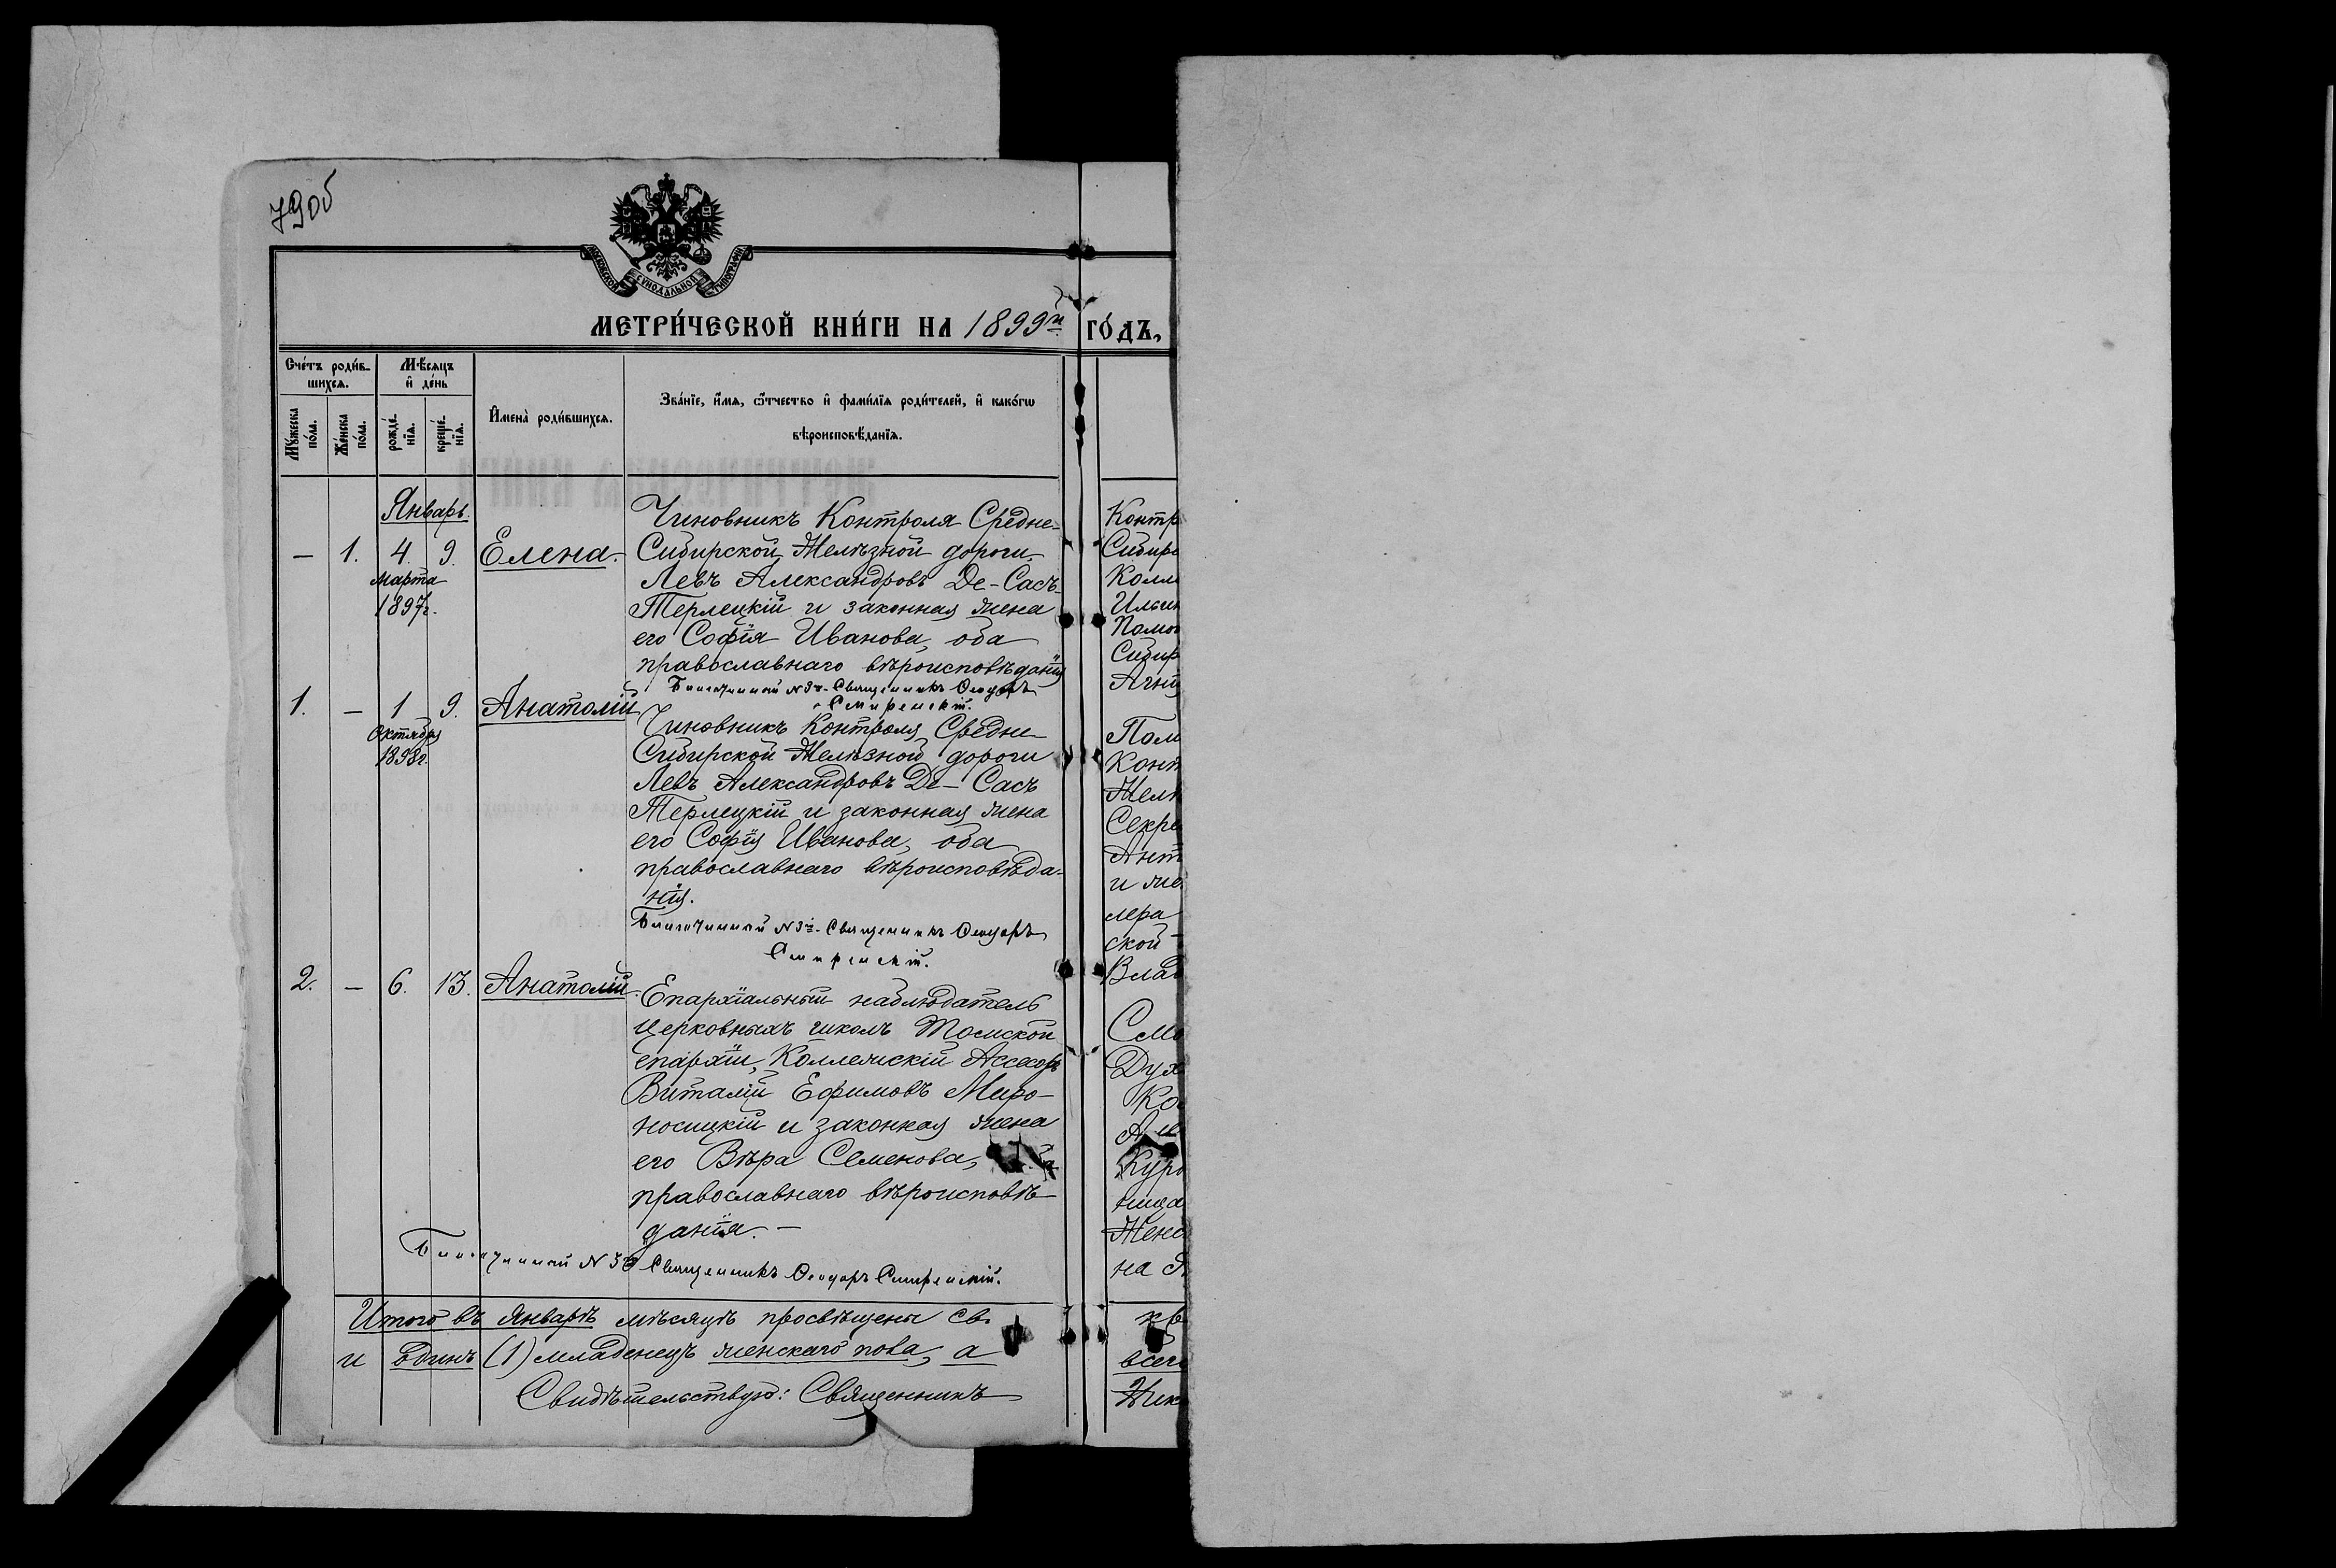 79об
МОСКОВСКОЙ СѴНОДАЛЬНОЙ ТИПОГРАФІИ
МЕТРИ́ЧЕСКОЙ КНИ́ГИ НА 1899й ГО́ДЪ,
Сче́тъ роди́в-
шихся.
Мѣ́сяцъ
и҆ де́нь
Мꙋ́жеска
по́ла.
Же́нска
по́ла.
рожде́-
нїя.
креще́-
нїя.
И҆мена̀ роди́вшихся.
Зва́нїе, и҆́мя, ѻ҆́тчество и҆ фами́лїя роди́телей, и҆ како́гѡ
вѣроисповѣ́данїя.
Январь.
— 1. 4. 9. Елена.
Марта
1897г.
Чиновникъ Контроля Средне-
Сибирской Желѣзной дороги
Левъ Александровъ Де-Сасъ-
Терлецкій и законная жена
его Софія Иванова, оба
православнаго вѣроисповѣданія
Благочинный №3й Священникъ Ѳеодоръ
Смиренскій.
1. — 1 9. Анатолій
Октября
1898г.
Чиновникъ Контроля Средне
Сибирской Желѣзной дороги
Левъ Александровъ Де-Сасъ
Терлецкій и законная жена
его Софія Иванова, оба
православнаго вѣроисповѣда-
нія.
Благочинный №3й Священникъ Ѳеодоръ
Смиренскій.
2. — 6. 13. Анатолій.
Епархіальный наблюдатель
церковныхъ школъ Томской
епархіи, Коллежскій Ассесоръ
Виталій Ефимовъ Миро-
носицкій и законная жена
его Вѣра Семенова,
православнаго вѣроисповѣ-
данія. —
Благочинный №3й Священникъ Ѳеодоръ Смиренскій.
Итого въ Январѣ мѣсяцѣ просвѣщены св.
и одинъ (1) младенецъ женскаго пола, а
Свидѣтельствую: Священникъ
Контр
Сибир
Колл
Ильи
Помо
Сибир
Пом
Конт
Желѣ
Секре
Ант
и же
лера
ской
Влад
Дух
Ко
Кур
ница
Жен
на
кр
всего
Ник